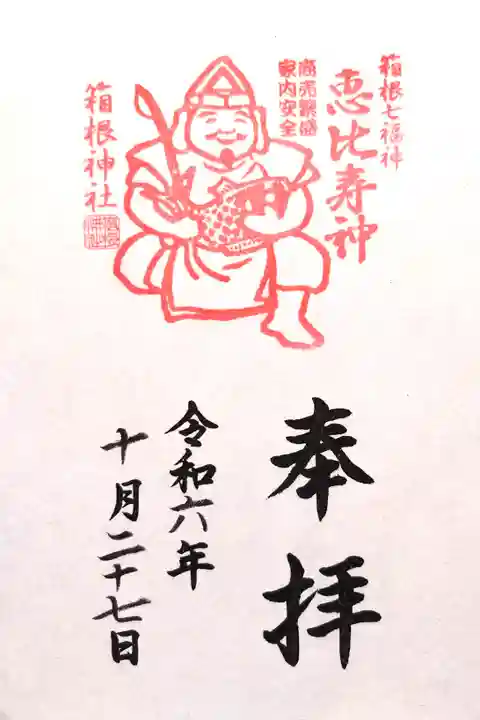 箱根七福神
恵比寿神
商売繁盛
家内安全
箱根神社
奉拝
令和六年
十月二十七日